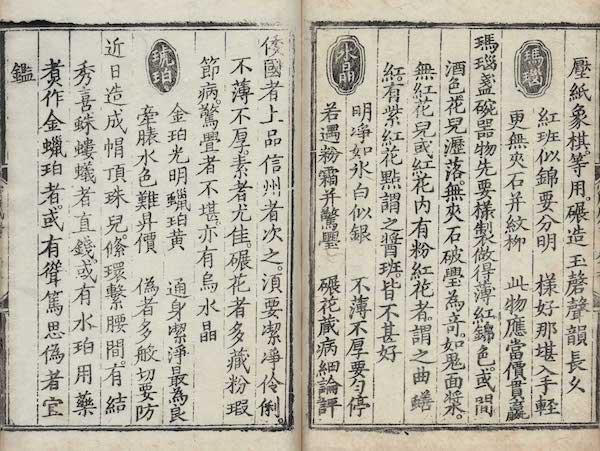 壓紙象棋等用。碾造玉磬聲韻長久
瑪瑙
紅班似錦要分明　樣好那堪入手輕
更無夾石并紋柳　此物應當價貫嬴
瑪瑙盞碗器物先要樣製做得薄紅錦色。或間
酒色花兒灑落。無夾石破璺為奇。如鬼面漿水。
無紅花兒或紅花內有粉紅花者。謂之曲蟮
紅。有紫紅花點謂之醬班。皆不甚好
水晶
明凈如水白似銀　不薄不厚要勻停
若遇粉霜并驚璺　碾花藏病細論評
倭國者上品信州者次之。須要潔凈伶俐。
不薄不厚素者尤佳。碾花者多藏粉瑕
節病。驚璺者不堪。亦有烏水晶
琥珀
金珀光明蠟珀黃　通身潔淨最為良
牽脿水色難昇價　偽者多般切要防
近日造成帽頂珠兒絛環繫腰間。有結
秀喜蛛螻蟻者直錢或有水珀用藥
煮作金蠟珀者。或有聳篤思偽者宜
鑑